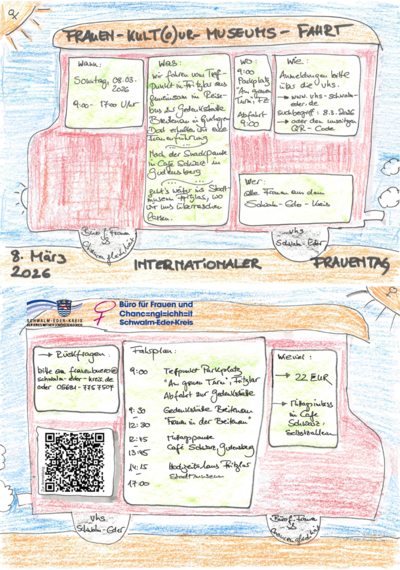 FRAUEN-KULT(O)UR-MUSEUMS-FAHRT
Wann:
Sonntag, 08.03.
2026
9:00 - 17:00 Uhr
Was:
Wir fahren vom Treff-
punkt in Fritzlar aus
gemeinsam im Reise-
bus zur Gedenkstätte
Breitenau in
Dort erhalten wir eine
Führung
Nach der
im Café Schwarz in
Gudensberg
geht's weiter ins Stadt-
museum Fritzlar, wo
wir uns überraschen
lassen.
Wo:
9:00
Parkplatz
"Am grauen
Turm", FZ
Abfahrt
9:00
Wie:
Anmeldungen bitte
über die vhs:
→ www.vhs-schwalm-
eder.de
Suchbegriff: 8.3.2026
→ oder den
QR-Code
Wer:
alle Frauen aus dem
Schwalm-Eder-Kreis
Büro f. Frauen
&
Chancengleichheit
vhs
Schwalm-Eder
8. März
2026
INTERNATIONALER
FRAUENTAG
SCHWALM-EDER-KREIS
Büro für Frauen und
Chanc=ngl=ichh=it
Schwalm-Eder-Kreis
→ Rückfragen:
bitte an frauenbuero@
schwalm-eder-kreis.de
oder 05681-7757509
Fahrplan:
9:00 Treffpunkt Parkplatz
"Am grauen Turm", Fritzlar
Abfahrt zur Gedenkstätte
9:30 Gedenkstätte Breitenau
- "Frauen in der Breitenau"
12:30
12:45 Mittagspause
- Café Schwarz, Gudensberg
13:45
14:15 Hochzeitshaus Fritzlar
- Stadtmuseum
17:00
Wieviel:
→ 22 EUR
→ Mittagsimbiss
im Café
Schwarz:
Selbstzahlen
vhs
Schwalm-Eder
Büro f. Frauen
&
Chancengleichheit